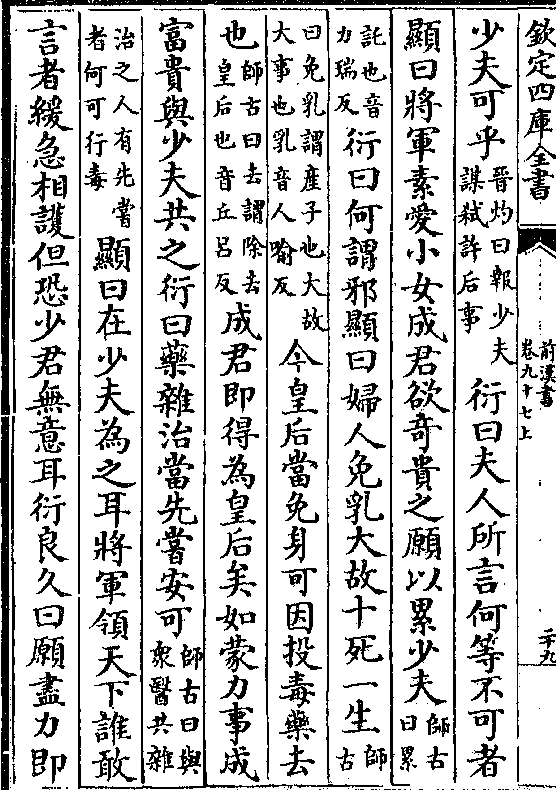 欽定四庫全書
前漢書
卷九十七上
少夫可乎晉灼曰報少夫謀弑許后事衍曰夫人所言何等不可者
顯曰將軍素愛小女成君欲奇貴之願以累少夫師古曰累
託也音力瑞反衍曰何謂邪顯曰婦人免乳大故十死一生師古
曰免乳謂産子也大故大事也乳音人喻反今皇后當免身可因投毒藥去
也師古曰去謂除去皇后也音丘呂反成君即得為皇后矣如蒙力事成
富貴與少夫共之衍曰藥雜治當先嘗安可師古曰與衆醫共雜
治之人有先嘗者何可行毒顯曰在少夫為之耳將軍領天下誰敢
言者緩急相護但恐少君無意耳衍良久曰願盡力即